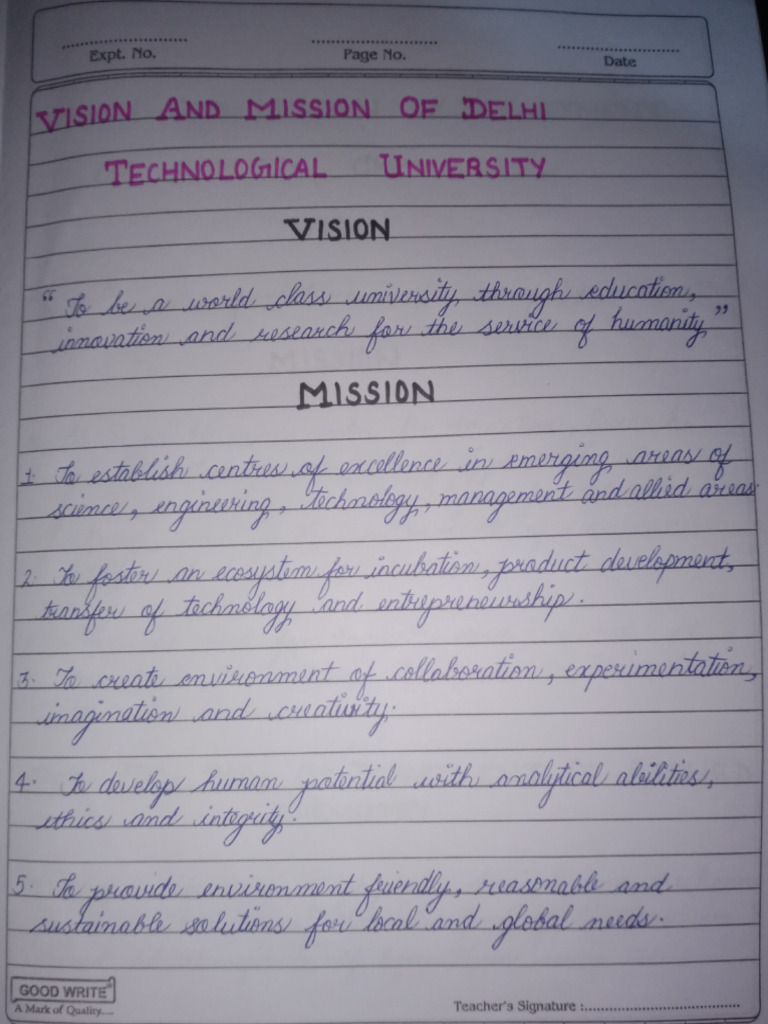 Expt. No. Page No. Date
VISION AND MISSION OF DELHI
TECHNOLOGICAL UNIVERSITY
VISION
“To be a world class university through education,
innovation and research for the service of humanity”
MISSION
1. To establish centres of excellence in emerging areas of
science, engineering, technology, management and allied areas.
2. To foster an ecosystem for incubation, product development,
transfer of technology and entrepreneurship.
3. To create environment of collaboration, experimentation,
imagination and creativity.
4. To develop human potential with analytical abilities,
ethics and integrity.
5. To provide environment friendly, reasonable and
sustainable solutions for local and global needs.
GOOD WRITE
A Mark of Quality....
Teacher's Signature :